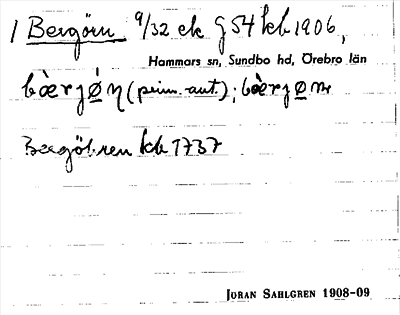 1 Bergörn 9/32 ek g 54 kb 1906,
Hammars sn, Sundbo hd, Örebro län
(prim. aut.);
Bergöhren kb 1737
JÖRAN SAHLGREN 1908-09